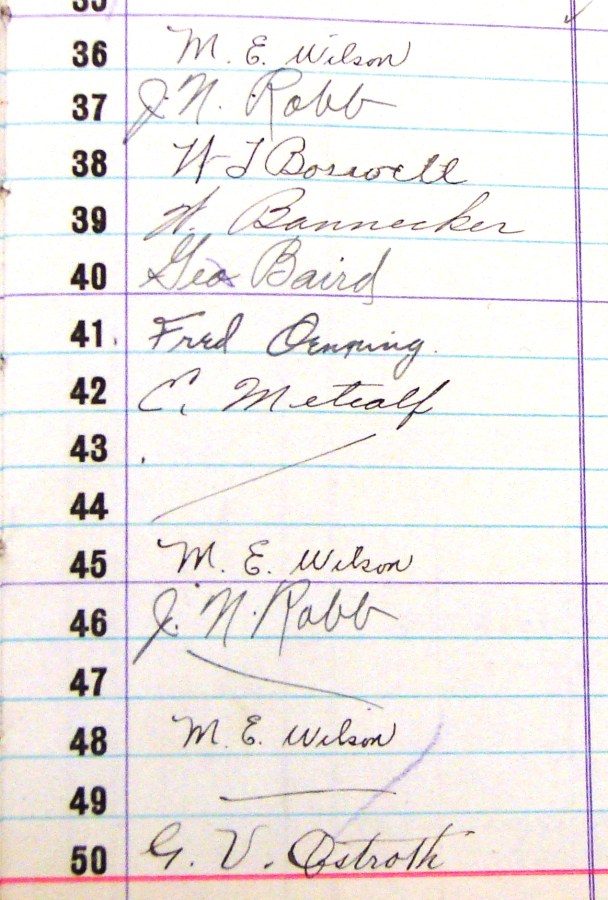 35
36 M. E. Wilson
37 J. N. Robb
38 W J Boswell
39 W. Bannecker
40 Geo Baird
41 Fred
42 C. Metcalf
43
44
45 M. E. Wilson
46 J. N. Robb
47
48 M. E. Wilson
49
50 G. V. Ostroth